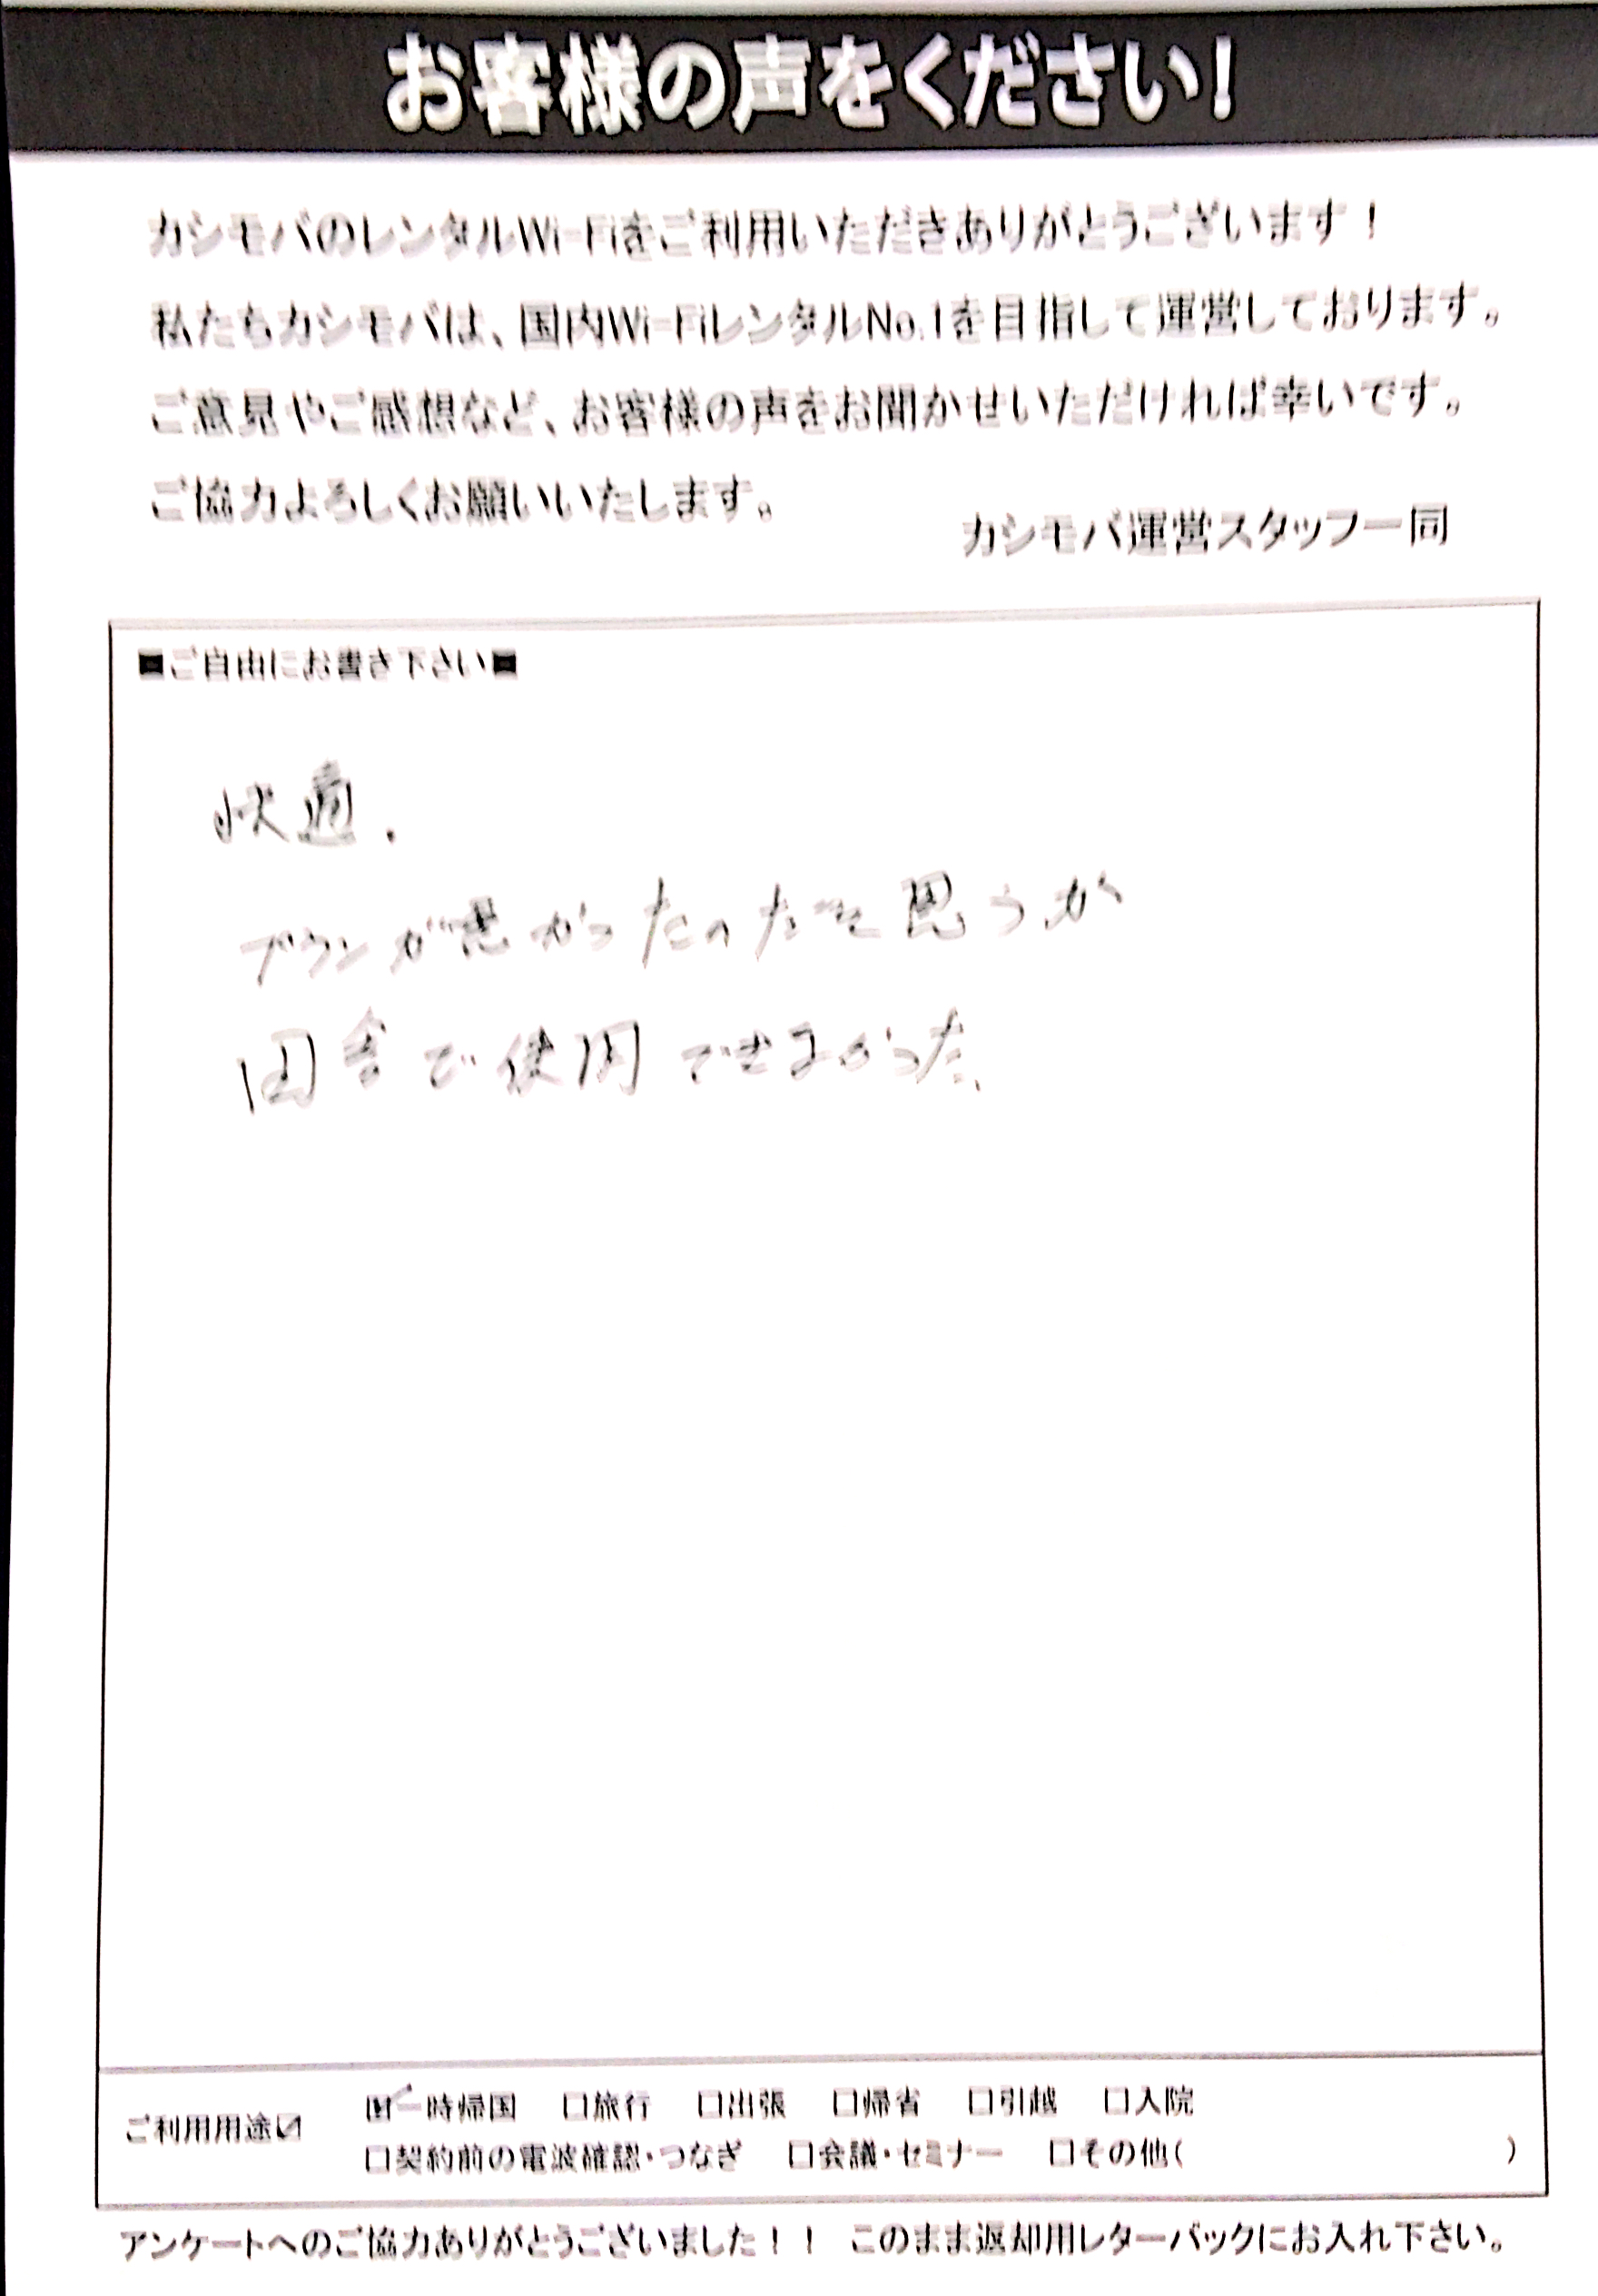 お客様の声をください!
カシモバのレンタルWi-Fiをご利用いただきありがとうございます！
私たちカシモバは、国内Wi-FiレンタルNo.1を目指して運営しております。
ご意見やご感想など、お客様の声をお聞かせいただければ幸いです。
ご協力よろしくお願いいたします。
カシモバ運営スタッフ一同
■ご自由にお書き下さい■
快適.
プランが悪かったのだと思うが
田舎で使用できなかった、
ご利用用途☑ ☑一時帰国 □旅行 □出張 □帰省 □引越 □入院
□契約前の電波確認・つなぎ □会議・セミナー □その他( )
アンケートへのご協力ありがとうございました！！ このまま返却用レターパックにお入れ下さい。